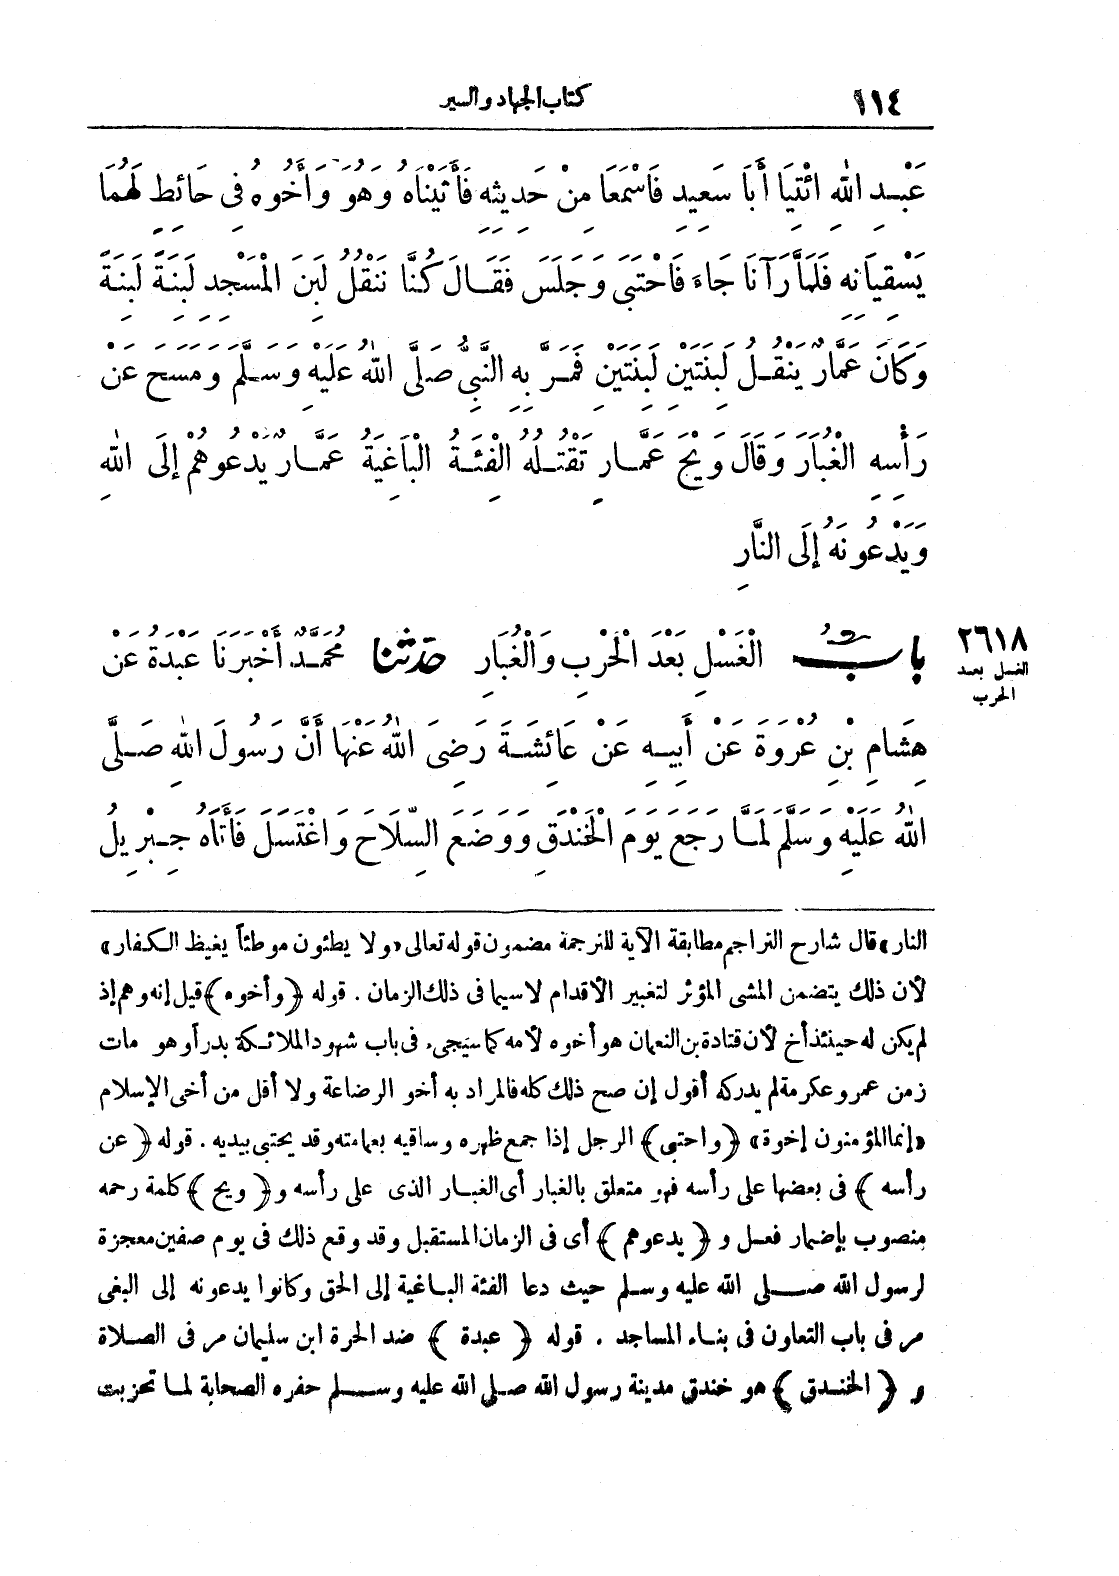 ١١٤ كتاب الجهاد والسير
عَبْدِ اللهِ ائْتِيَا أَبَا سَعِيدٍ فَاسْمَعَا مِنْ حَدِيثِهِ فَأَتَيْنَاهُ وَهُوَ وَأَخُوهُ فِى حَائِطٍ لَهُمَا
يَسْقِيَانِهِ فَلَمَّا رَآنَا جَاءَ فَاحْتَبَى وَجَلَسَ فَقَالَ كُنَّا نَنْقُلُ لَبِنَ الْمَسْجِدِ لَبِنَةً لَبِنَةً
وَكَانَ عَمَّارٌ يَنْقُلُ لَبِنَتَيْنِ لَبِنَتَيْنِ فَمَرَّ بِهِ النَّبِىُّ صَلَّى اللهُ عَلَيْهِ وَسَلَّمَ وَمَسَحَ عَنْ
رَأْسِهِ الْغُبَارَ وَقَالَ وَيْحَ عَمَّارٍ تَقْتُلُهُ الْفِئَةُ الْبَاغِيَةُ عَمَّارٌ يَدْعُوهُمْ إِلَى اللهِ
وَيَدْعُونَهُ إِلَى النَّارِ
بابُ الْغَسْلِ بَعْدَ الْحَرْبِ وَالْغُبَارِ حَدَّثَنَا مُحَمَّدٌ أَخْبَرَنَا عَبْدَةُ عَنْ
٢٦١٨
الغسل بعد
الحرب
هِشَامِ بْنِ عُرْوَةَ عَنْ أَبِيهِ عَنْ عَائِشَةَ رَضِىَ اللهُ عَنْهَا أَنَّ رَسُولَ اللهِ صَلَّى
اللهُ عَلَيْهِ وَسَلَّمَ لَمَّا رَجَعَ يَوْمَ الْخَنْدَقِ وَوَضَعَ السِّلَاحَ وَاغْتَسَلَ فَأَتَاهُ جِبْرِيلُ
النار» قال شارح التراجم مطابقة الآية للترجمة مضمون قوله تعالى «ولا يطئون موطئاً يغيظ الكفار»
لأن ذلك يتضمن المشى المؤثر لتغبير الأقدام لاسيما فى ذلك الزمان . قوله ﴿وأخوه﴾ قيل إنه وهم إذ
لم يكن له حينئذ أخ لأن قتادة بن النعمان هو أخوه لأمه كما سيجىء فى باب شهود الملائكة بدرا وهو مات
زمن عمر وعكرمة لم يدركه أقول إن صح ذلك كله فالمراد به أخو الرضاعة ولا أقل من أخى الإسلام
«إنما المؤمنون إخوة» ﴿واحتبى﴾ الرجل إذا جمع ظهره وساقيه بعمامته وقد يحتبى بيديه . قوله ﴿عن
رأسه﴾ فى بعضها على رأسه فهو متعلق بالغبار أى الغبار الذى على رأسه و﴿ويح﴾ كلمة رحمه
منصوب بإضمار فعل و﴿يدعوهم﴾ أى فى الزمان المستقبل وقد وقع ذلك فى يوم صفين معجزة
لرسول الله صلى الله عليه وسلم حيث دعا الفئة الباغية إلى الحق وكانوا يدعونه إلى البغى
مر فى باب التعاون فى بناء المساجد . قوله ﴿عبدة﴾ ضد الحرة ابن سليمان مر فى الصلاة
و﴿الخندق﴾ هو خندق مدينة رسول الله صلى الله عليه وسلم حفره الصحابة لما تحزبت